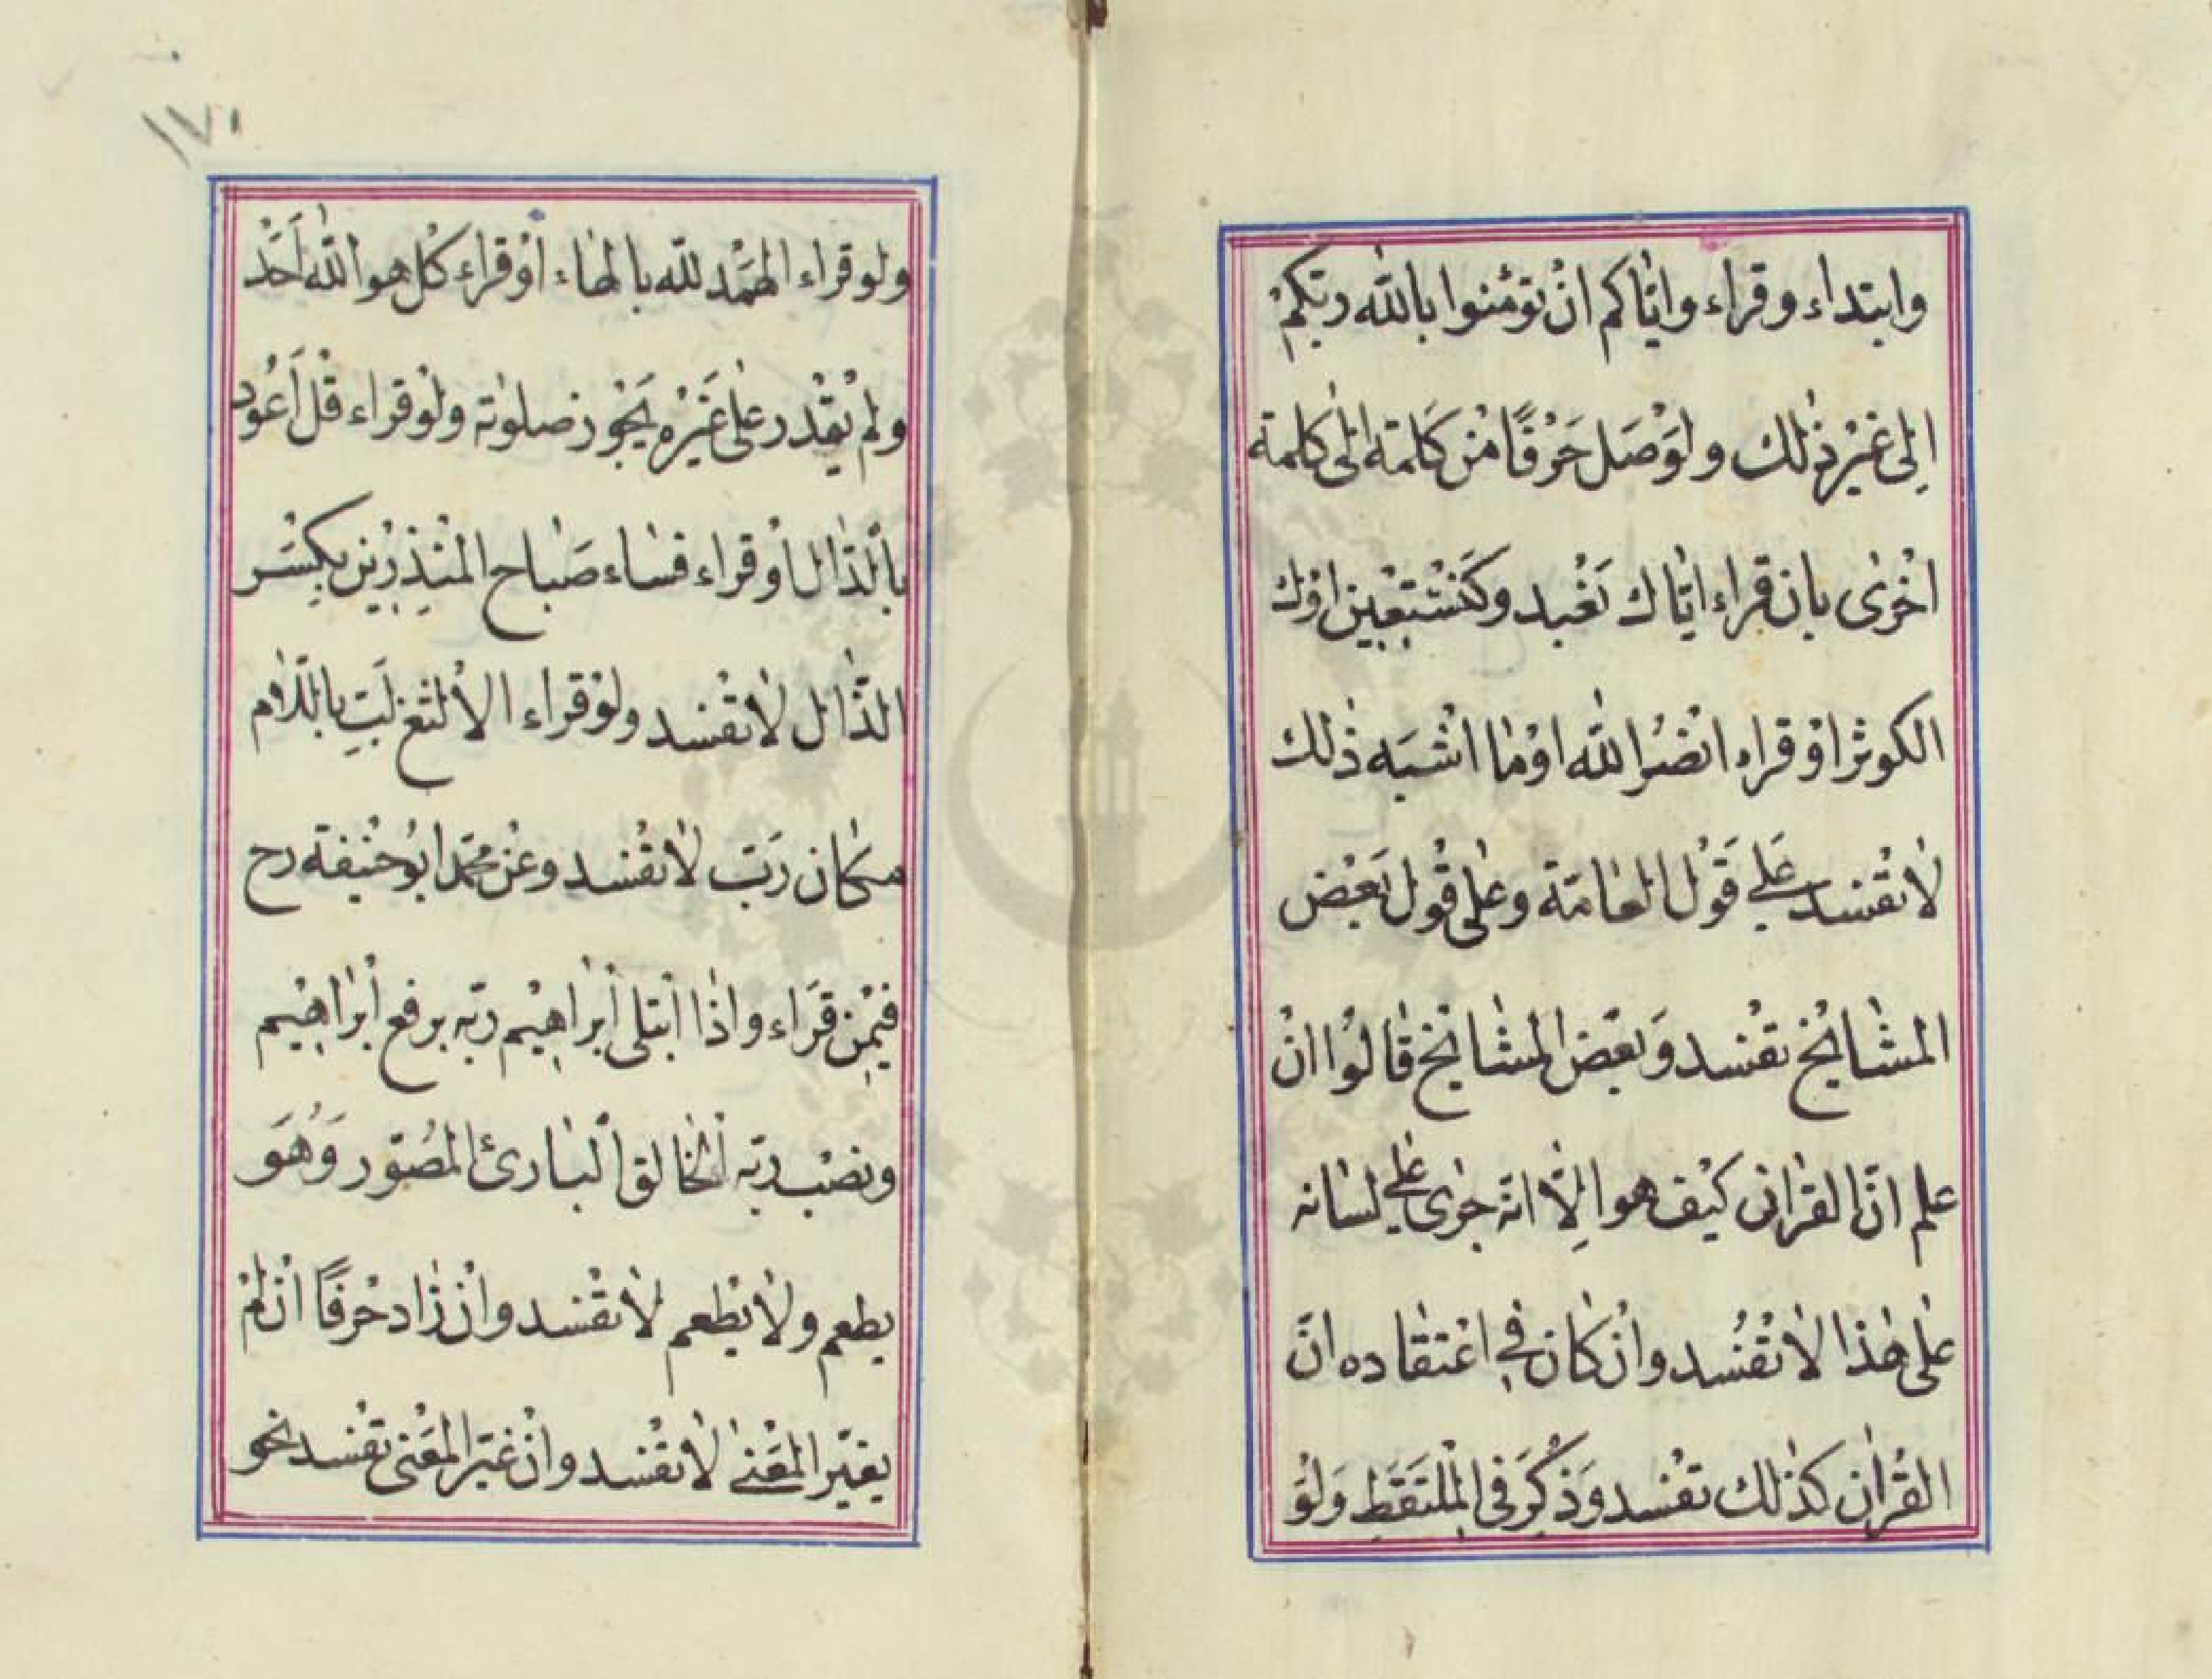 وابتداء وقراء وايّاكم انْ تؤمنوا بالله ربّكمْ
اِلى غيْر ذٰلك ولوَْ وصَل حَرْفًا منْ كَلمة الٰى كلمة
اخْرٰى بان قراء ايّاك نَعْبد وكَنسْتعْين اوْ انّ
الكوثر اوْ قراء انصُر الله اوْ ما اشْبَه ذٰلك
لٰا تفْسد علَي قَوْل العامّة وعلى قوْل بَعْض
المشٰايْخ تفْسد وَبعْض المشايخ قٰالوُا انْ
علم انّ القراٰن كيْف هو الِاّ انّه جرٰى علي لسانه
علٰى هٰذا لٰا تفْسُد وانْ كٰان في اعْتقٰاده انّ
القُراٰن كذٰلك تفْسد وَذكرَ فى الْملتَقَطِ وَلوْ
١٧١
ولو قراء الهَمْد للّه بالهاء اوْ قراء كُل هو اللّٰه اَحَدْ
ولم يَقْدر علٰى غَيْره يَجْوز صلٰوته ولوْ قراء قْل اَعُوْد
بالدّٰال اوْ قراء فسٰاء صَبٰاح المنْذِرْين بكِسَْر
الذّٰال لٰا تفْسد ولوْ قراء الاْلثغ لَبّ باللّام
مكٰان رَبّ لٰا تفْسد وعنْ محمّد ابوُ حنْيفة رح
فيْمن قرَاء واذٰا ابْتلى ابْراهيْم ربّه برفع ابْراهيْم
ونصْب ربّه الْخٰالق الْبٰارئ المصُوّر وَهُوَ
يطعم ولٰا يطْعم لٰا تفْسد وانْ زٰاد حْرفًا انْ لمْ
يغيّر المَعْنىٰ لٰا تفْسد وانْ غيّر المَعْنى تفْسد نحو